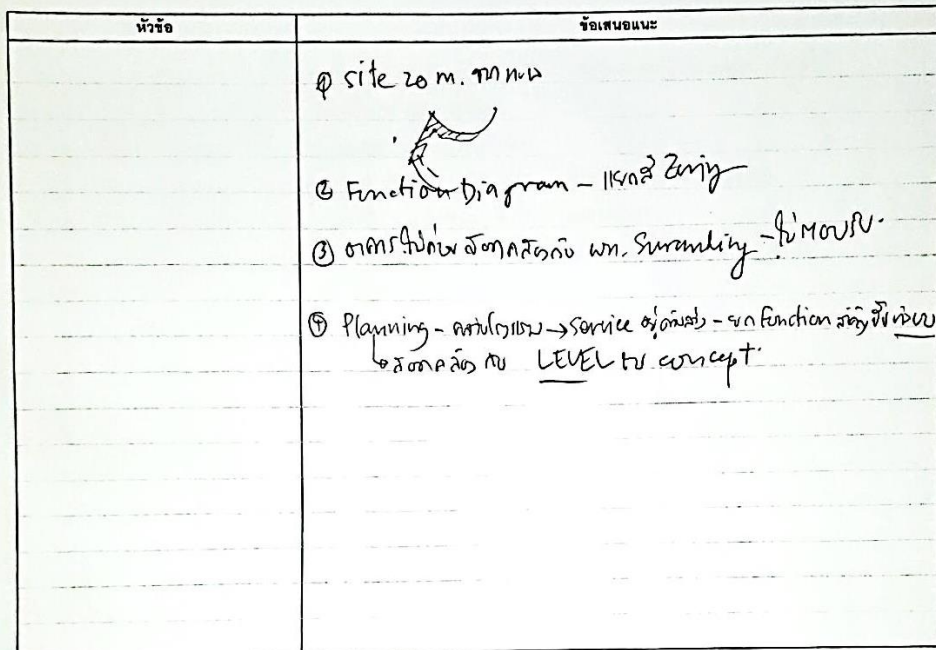 หัวข้อ ข้อเสนอแนะ
① site 20 m. จากทะเล
② Function Diagram - แยกสี Zoning
③ อาคารไม่ค่อยสอดคล้องกับ พท. Surounding - ไม่ตอบรับ.
④ Planning - → Service อยู่ด้านล่าง - ยก Function สำคัญขึ้นข้างบน
สอดคล้อง กับ LEVEL ใน concept.